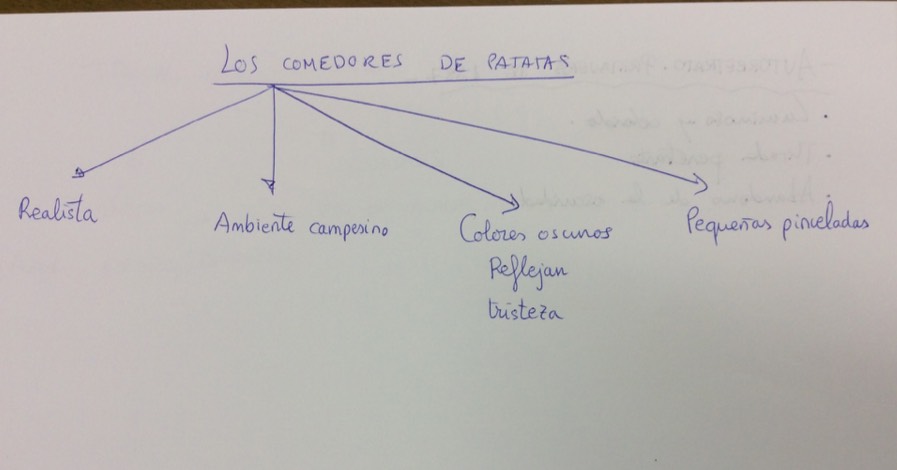 LOS COMEDORES DE PATATAS
Realista
Ambiente campesino
Colores oscuros
Reflejan
tristeza
Pequeñas pinceladas